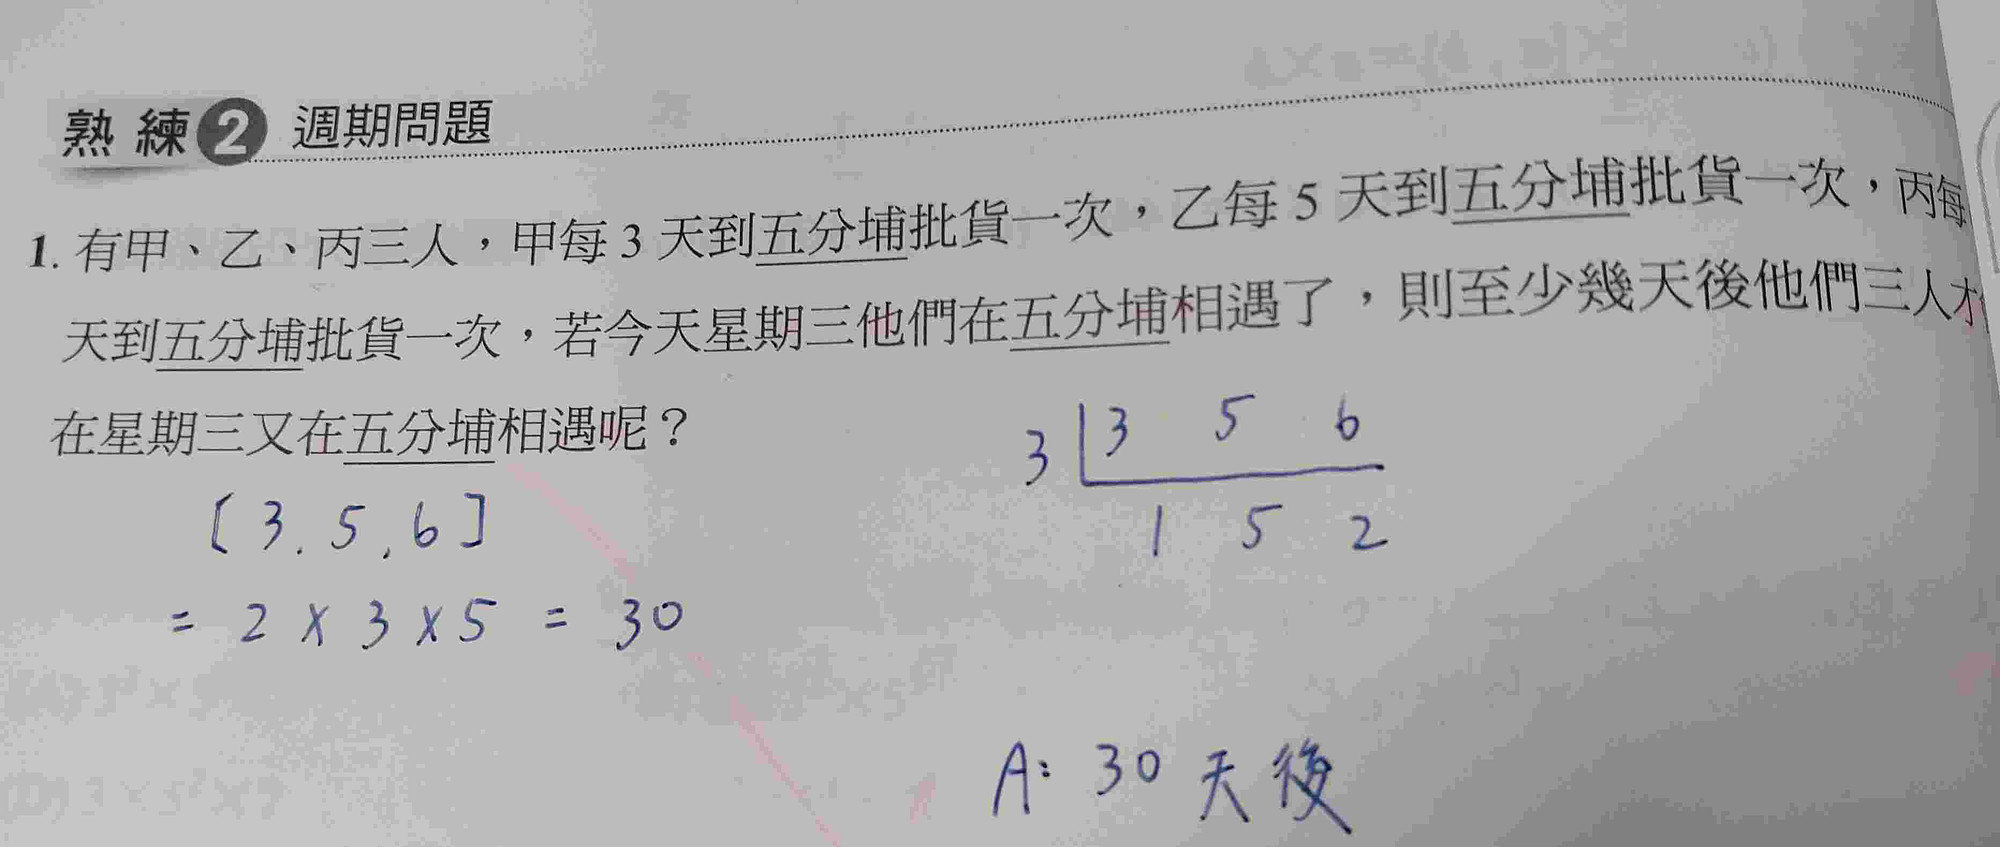 熟練2 週期問題
1. 有甲、乙、丙三人，甲每3天到五分埔批貨一次，乙每5天到五分埔批貨一次，丙每
天到五分埔批貨一次，若今天星期三他們在五分埔相遇了，則至少幾天後他們三人才
在星期三又在五分埔相遇呢？
3 3 5 6
1 5 2
[3.5,6]
= 2 × 3 × 5 = 30
A: 30 天後